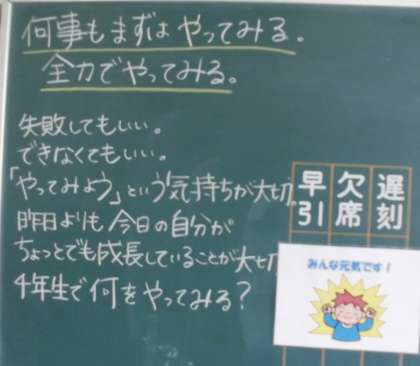 何事もまずは やってみる。
全力でやってみる。
失敗してもいい。
できなくてもいい。
「やってみよう」という気持ちが大切。
昨日よりも 今日の自分が
ちょっとでも成長していることが大切
4年生で何をやってみる?
早引
欠席
遅刻
みんな元気です!